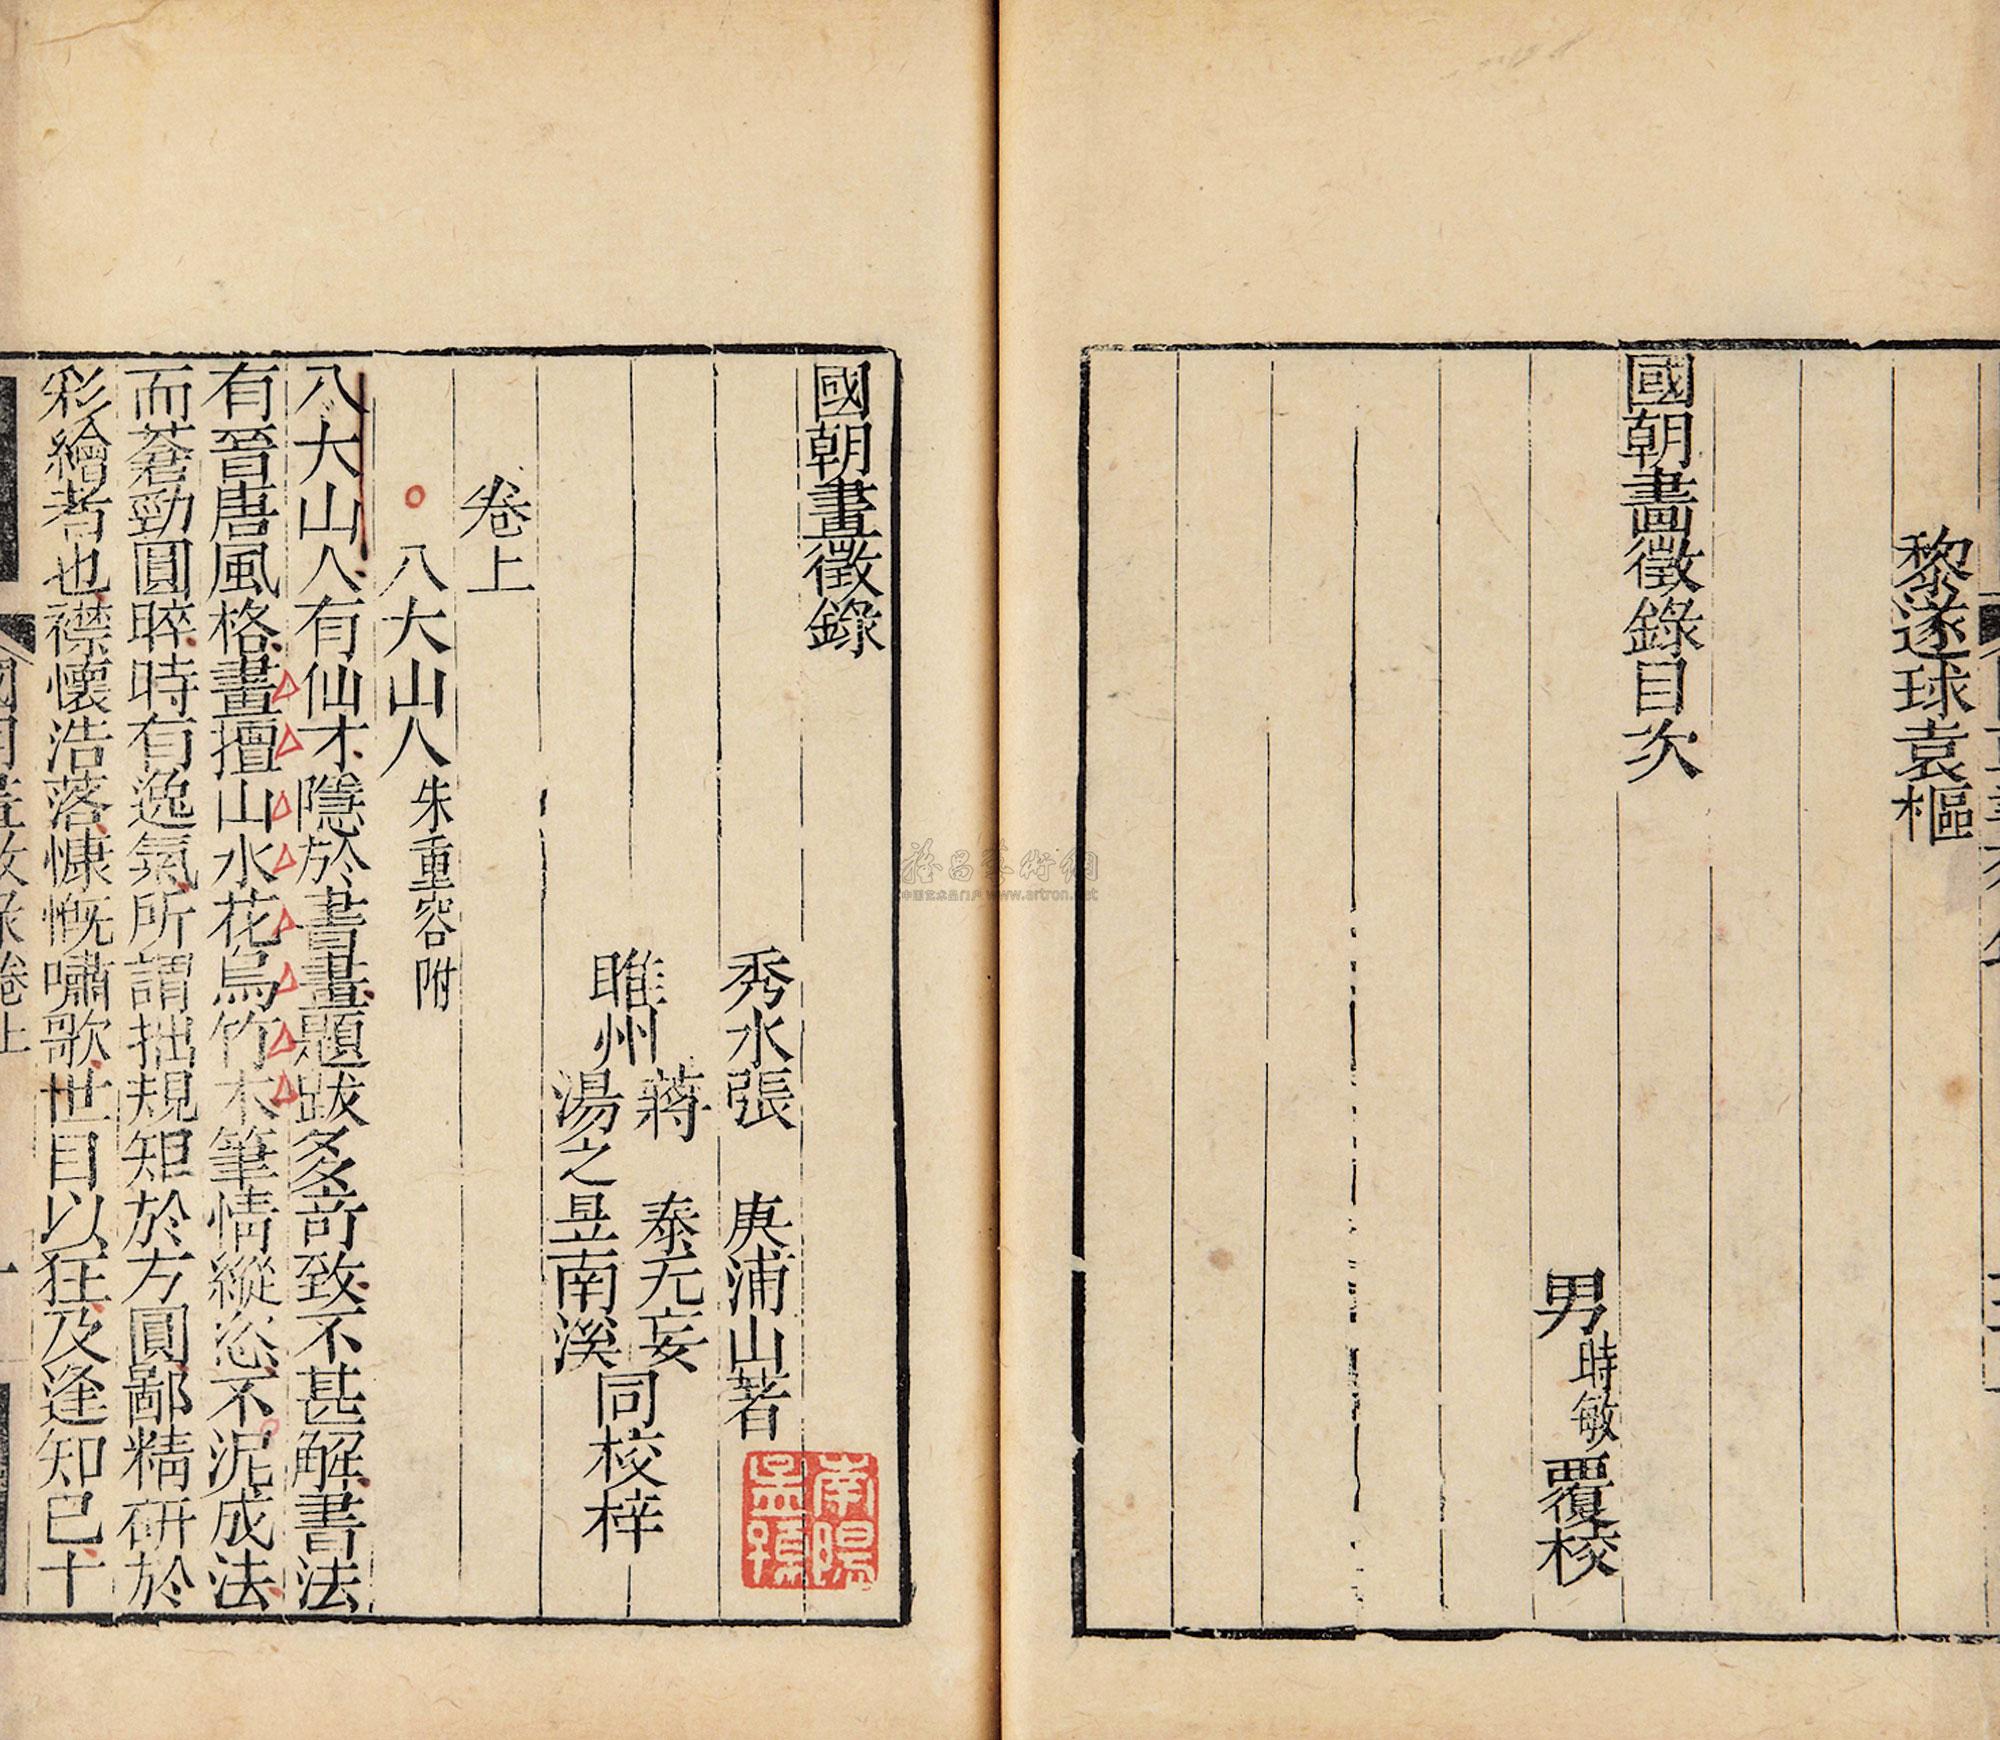 黎遂球袁樞
國朝畫徵錄目次
男時敏覆校
國朝畫徵錄
秀水張 庚浦山著
睢州蔣 泰无妄
湯之昱南溪同校梓
卷上
八大山人朱重容附
八大山人有仙才隱於書畫題跋多奇致不甚解書法
有晉唐風格畫擅山水花鳥竹木筆情縱恣不泥成法
而蒼勁圓晬時有逸氣所謂拙規矩於方圓鄙精研於
彩繪者也襟懷浩落慷慨嘯歌世目以狂及逢知已十
卷上
南陽
中国艺术品门户 www.artron.net